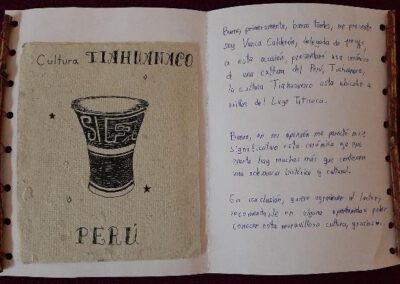 Cultura TIAHUANACO
PERÚ
Bueno, primeramente, buenas tardes, me presento
soy Vanca Calderón, delegada de
a esta ocasión, presentaré una cerámica
d una cultura del Perú, Tiahuanaco,
la cultura Tiahuanaco esta ubicada a
orillas del Lago Titicaca.
Bueno, en mi opinión me pareció muy
significativo esta cerámica ya que
aparte hay muchas más que contienen
una relevancia histórica y cultural.
En conclusión, quiero agradecer al lector,
recomendarle en alguna oportunidad poder
conocer esta maravillosa cultura, gracias.